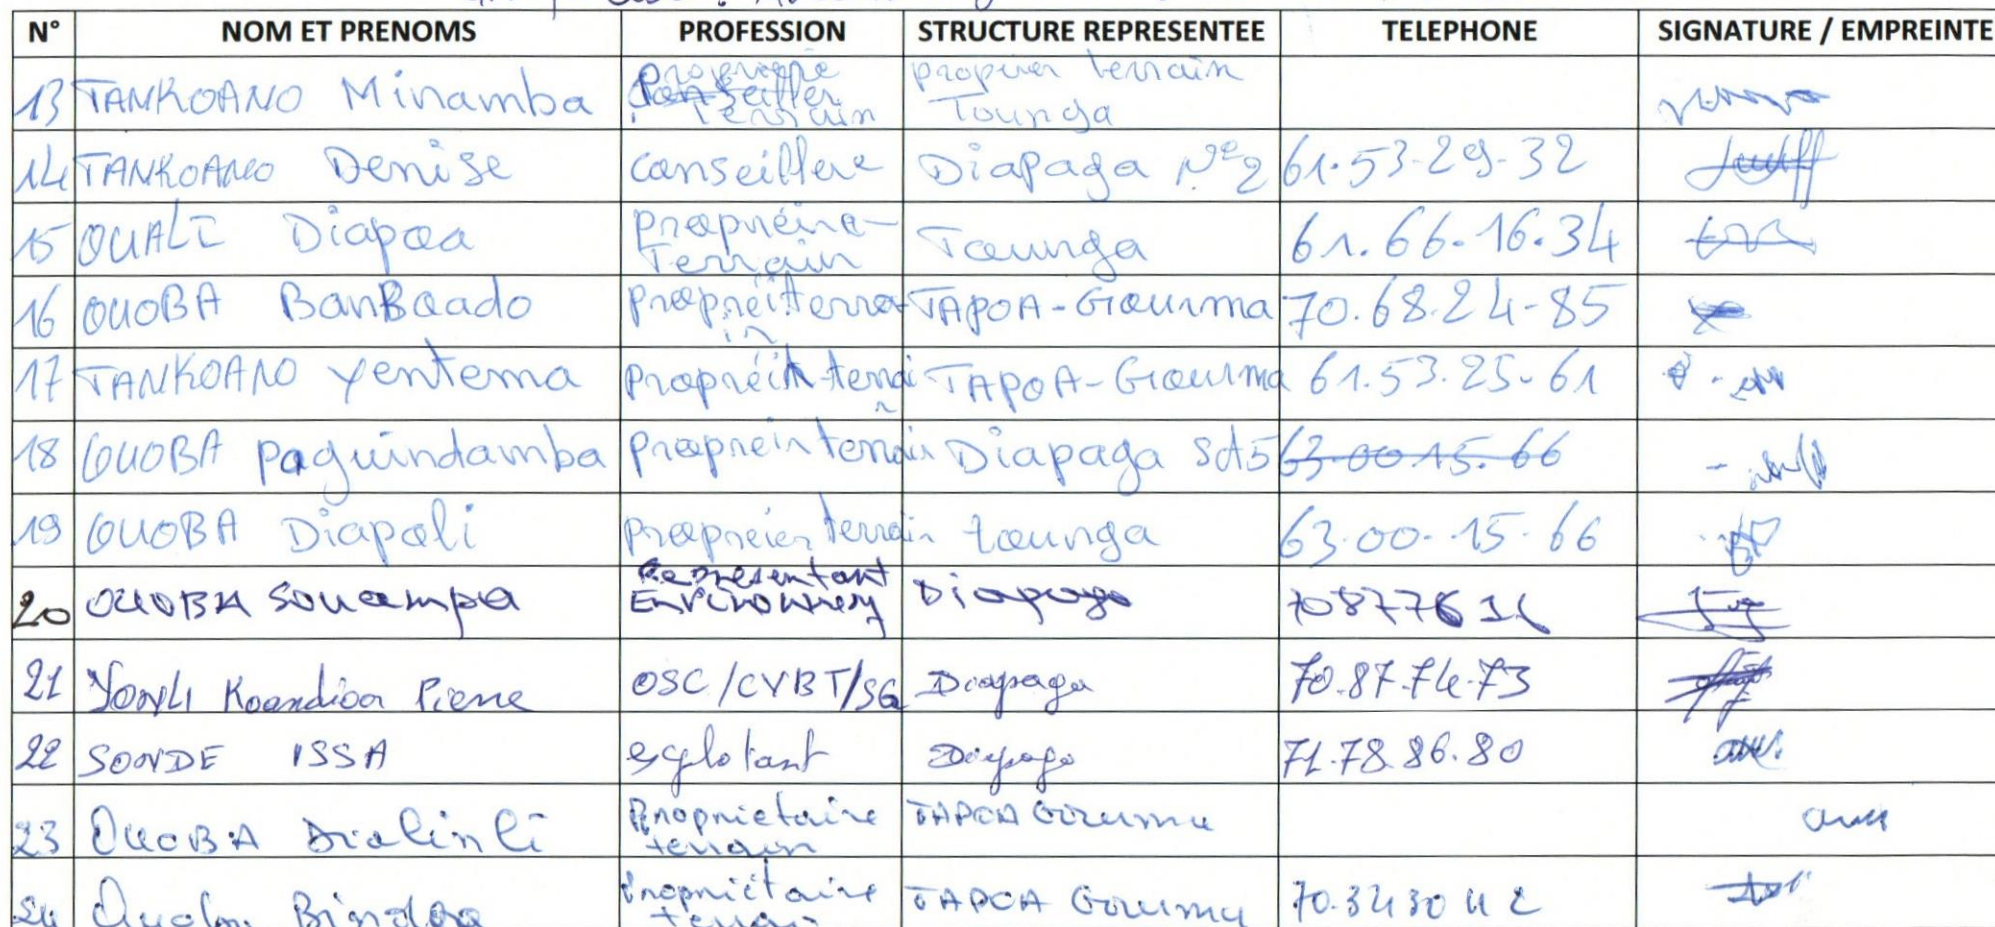 N° NOM ET PRENOMS PROFESSION STRUCTURE REPRESENTEE TELEPHONE SIGNATURE / EMPREINTE
13 TANKOANO Minamba Conseiller Terrain propver terrain Tounga
14 TANKOANO Denise Conseillere Diapaga N°2 61.53-29-32
15 OUALI Diapoa Propriéna- Terrain Tounga 61.66.16.34
16 OUOBA BanBaado Propreiterra in TAPOA-Gourma 70.68.24-85
17 TANKOANO Yentema TAPOA-Gourma 61.53.25-61
18 OUOBA Paguindamba Proprein terrain Diapaga Sct5 63.00 15.66
19 OUOBA Diapoli Propreien terrain tounga 63.00-15-66
20 OUOBA Souampa Representant Diapaga 70877631
21 YONLI Koandioa Pierre OSC/CVBT/SG Diapaga 70.87.74.73
22 SONDE ISSA explotant Diapaga 71.78.86.80
23 OUOBA Dialinli Propriétaire terrain TAPOA Gourma
24 Propriétaire terrain TAPOA Gourma 70.34 30 42